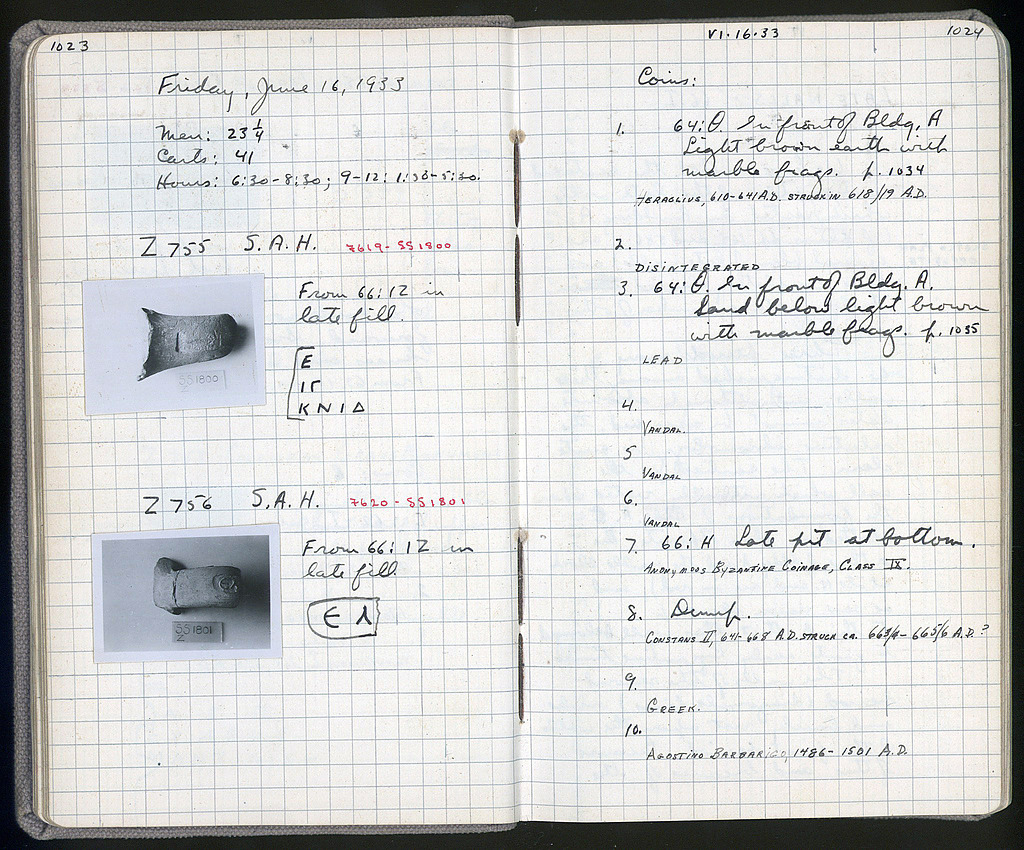 1023
Friday, June 16, 1933
Men: 23 1/4
Carts: 41
Hours: 6:30-8:30; 9-12; 1:30-5:30.
Z 755 S.A.H. 7619-SS1800
From 66:IZ in
late fill.
SS1800
Z
E
ΙΓ
ΚΝΙΔ
Z 756 S.A.H. 7620-SS1801
From 66:IZ in
late fill.
SS1801
Z
Є Λ
VI.16.33
1024
Coins:
1. 64:Θ. In front of Bldg. A
Light brown earth with
marble frags. p. 1034
HERACLIUS, 610-641 A.D. STRUCK IN 618/19 A.D.
2.
DISINTEGRATED
3. 64:Θ. In front of Bldg. A.
Sand below light brown
with marble frags. p. 1035
LEAD
4.
VANDAL.
5
VANDAL
6.
VANDAL
7. 66:H Late pit at bottom.
ANONYMOUS BYZANTINE COINAGE, CLASS IX.
8. Dump.
CONSTANS II, 641-668 A.D. STRUCK ca. 663/4-665/6 A.D.?
9.
GREEK.
10.
AGOSTINO BARBARIGO, 1486-1501 A.D.